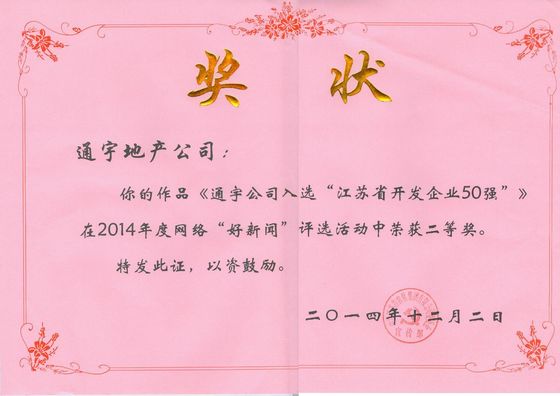 奖 状
通宇地产公司：
你的作品《通宇公司入选“江苏省开发企业50强”》
在2014年度网络“好新闻”评选活动中荣获二等奖。
特发此证，以资鼓励。
宣传部
二〇一四年十二月二日